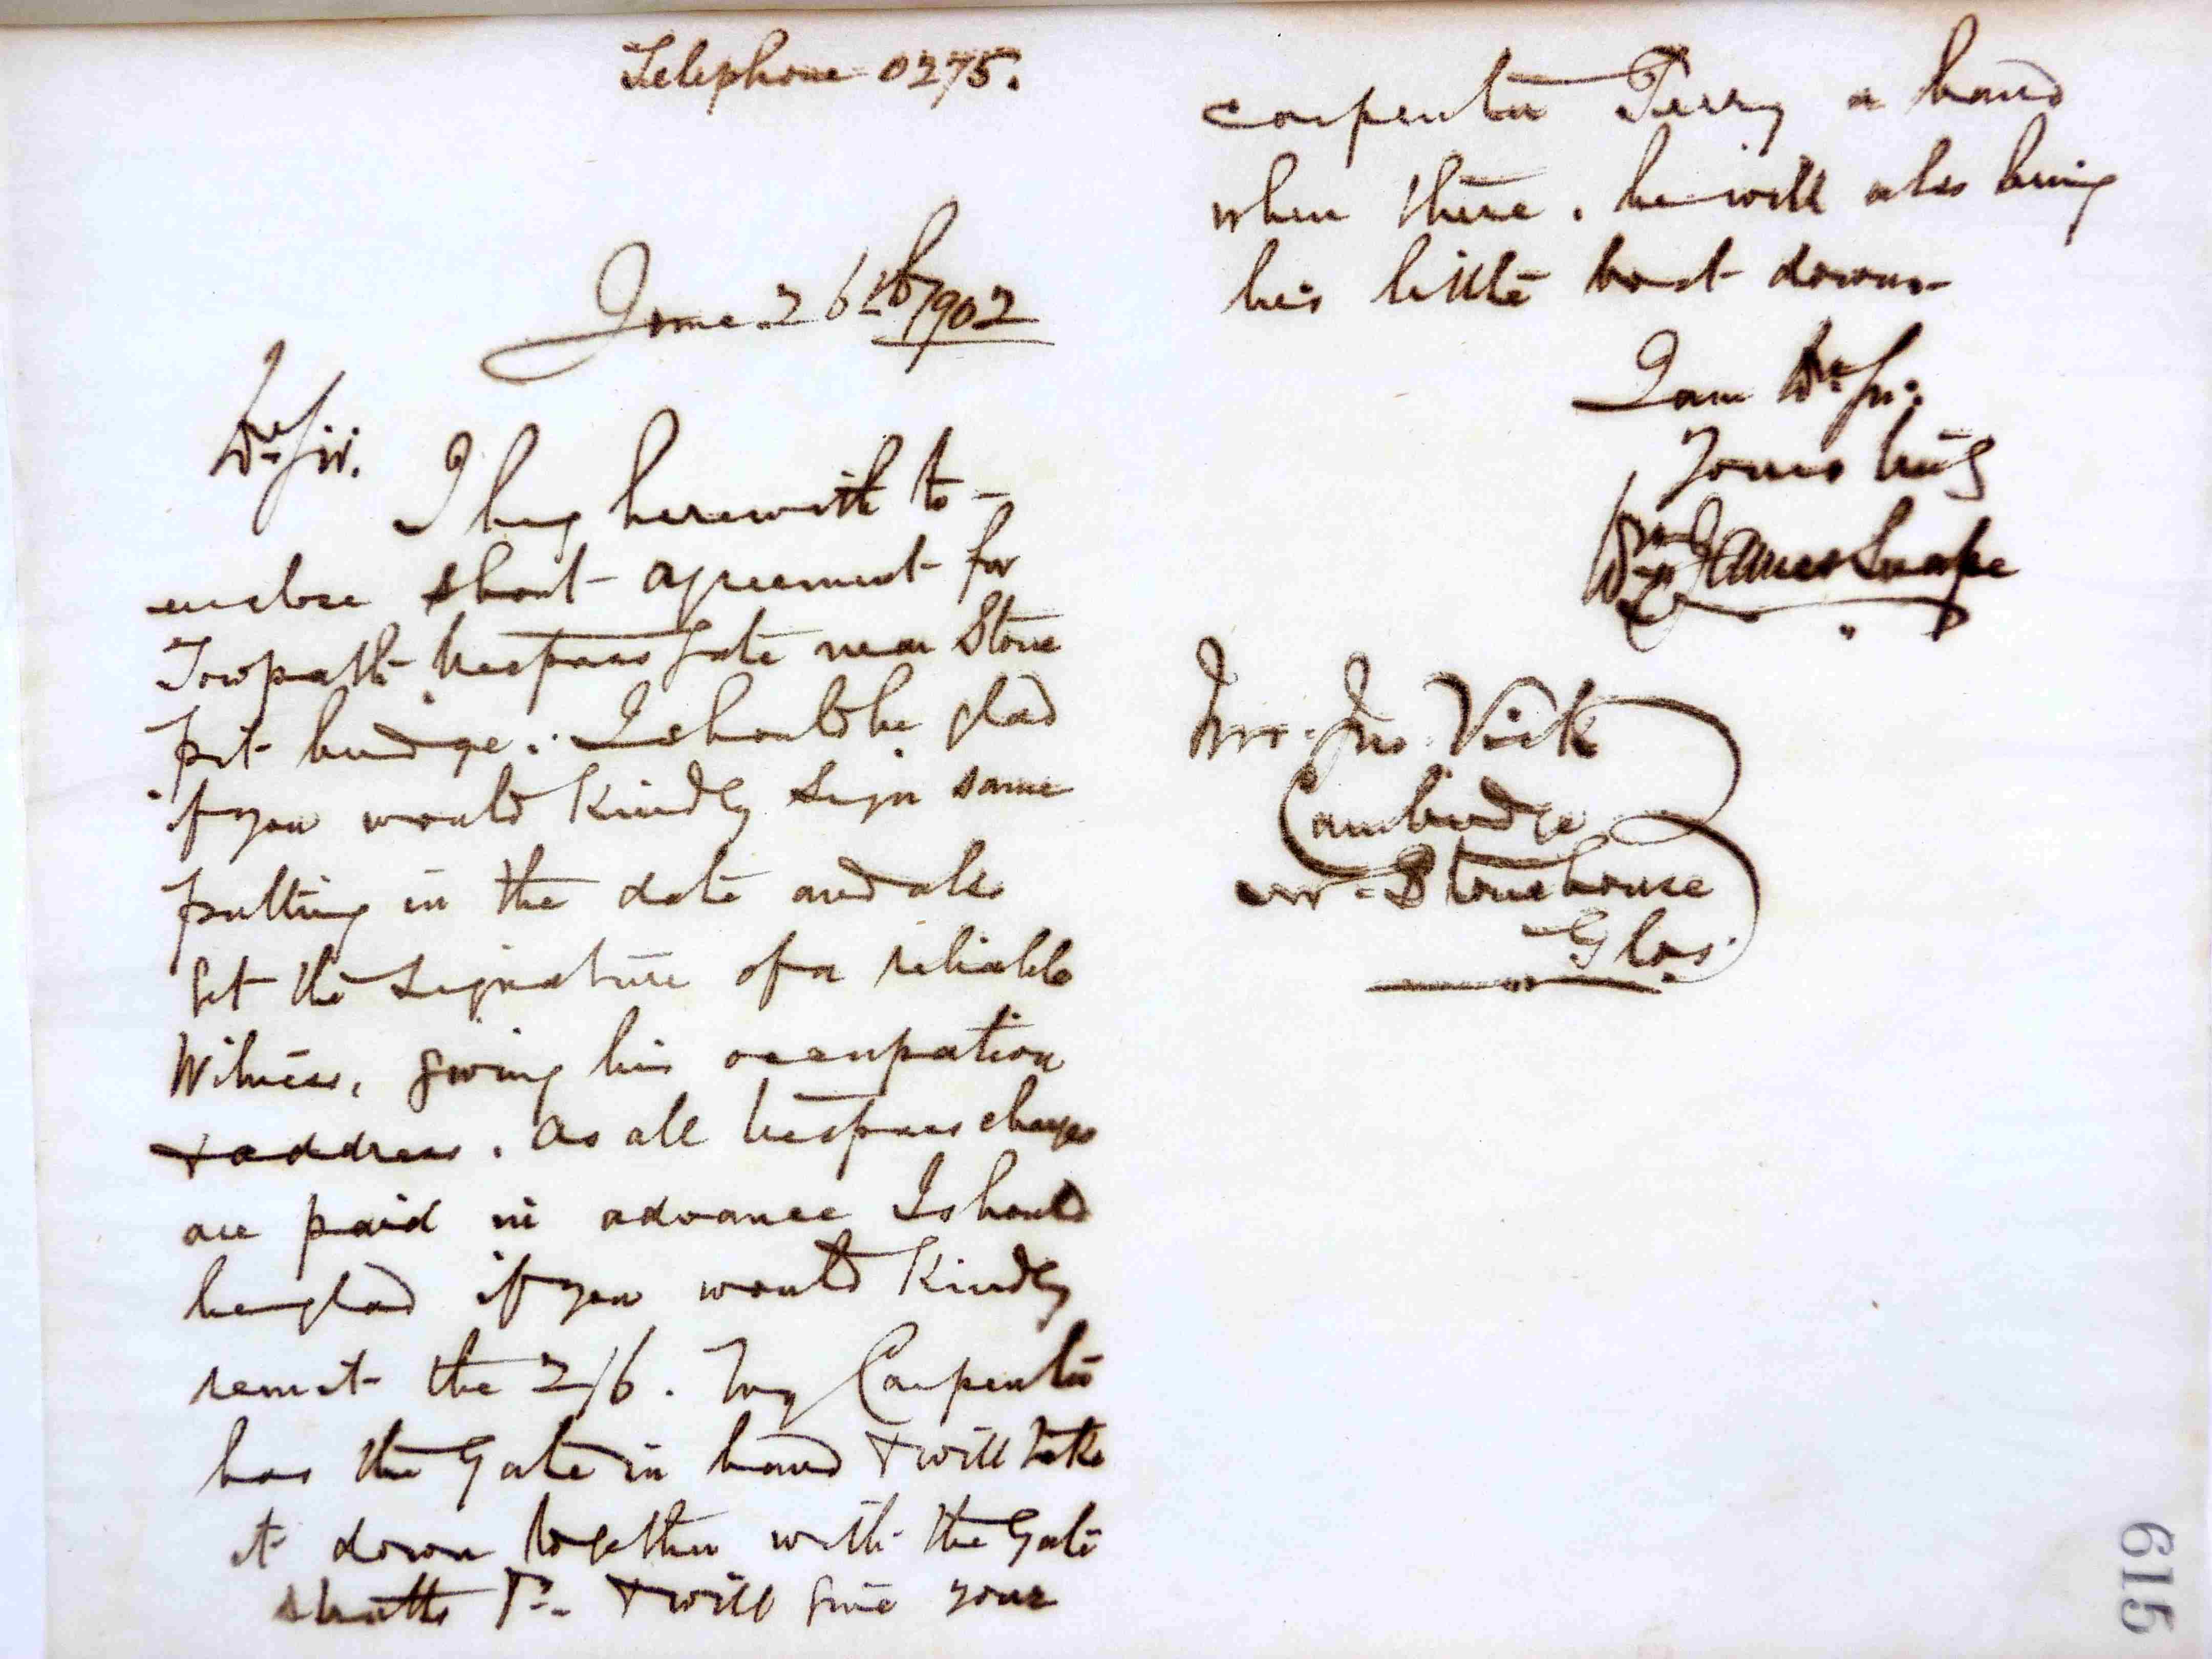 Telephone 0275.
June 26th/1902
Dr Sir.
I beg herewith to -
enclose short agreement for
Towpath trespass Gate near Stone
pit bridge. I should be glad
if you would Kindly sign same
putting in the date and also
get the signature of a reliable
Witness, giving his occupation
+ address. As all trespass charges
are paid in advance I should
be glad if you would Kindly
remit the 2/6. My Carpenter
has the Gate in hand + will take
it down together with the Gate
+ will give your
carpenter Perry a hand
when there. he will also bring
his little boat down
I am Dr Sir.
Yours truly
Wm James Snape
Mr. Jno. Vick
Cambridge
nr. Stonehouse
Glos.
615